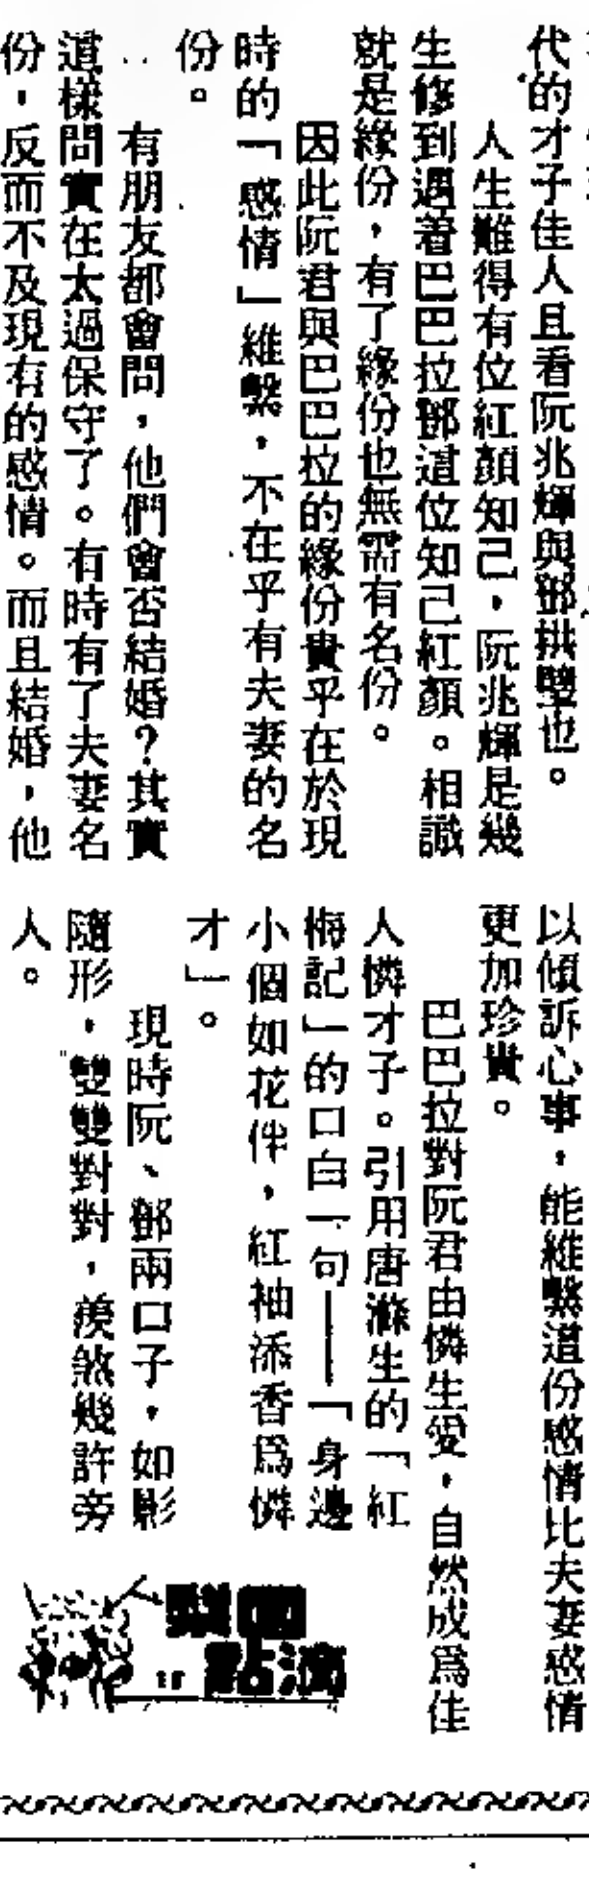 代的才子佳人且看阮兆輝與鄧拱璧也。
人生難得有位紅顏知己，阮兆輝是幾
生修到遇着巴巴拉鄧這位知己紅顏。相識
就是緣份，有了緣份也無需有名份。
因此阮君與巴巴拉的緣份貴乎在於現
時的「感情」維繫，不在乎有夫妻的名
份。
有朋友都會問，他們會否結婚？其實
這樣問實在太過保守了。有時有了夫妻名
份，反而不及現有的感情。而且結婚，他
以傾訴心事，能維繫這份感情比夫妻感情
更加珍貴。
巴巴拉對阮君由憐生愛，自然成爲佳
人憐才子。引用唐滌生的「紅
梅記」的口白一句——「身邊
小個如花伴，紅袖添香爲憐
才」。
現時阮、鄧兩口子，如影
隨形，雙雙對對，羨煞幾許旁
人。
點滴